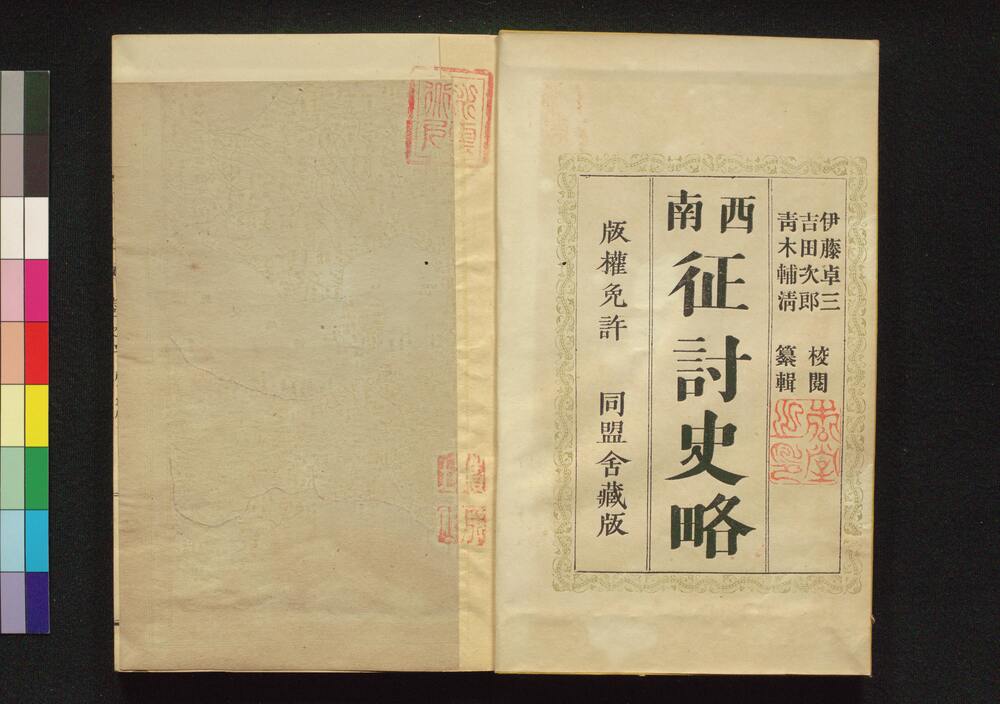 伊藤卓三
吉田次郎 校閲
青木輔清 纂輯
西南
征討史略
版權免許 同盟舎藏版